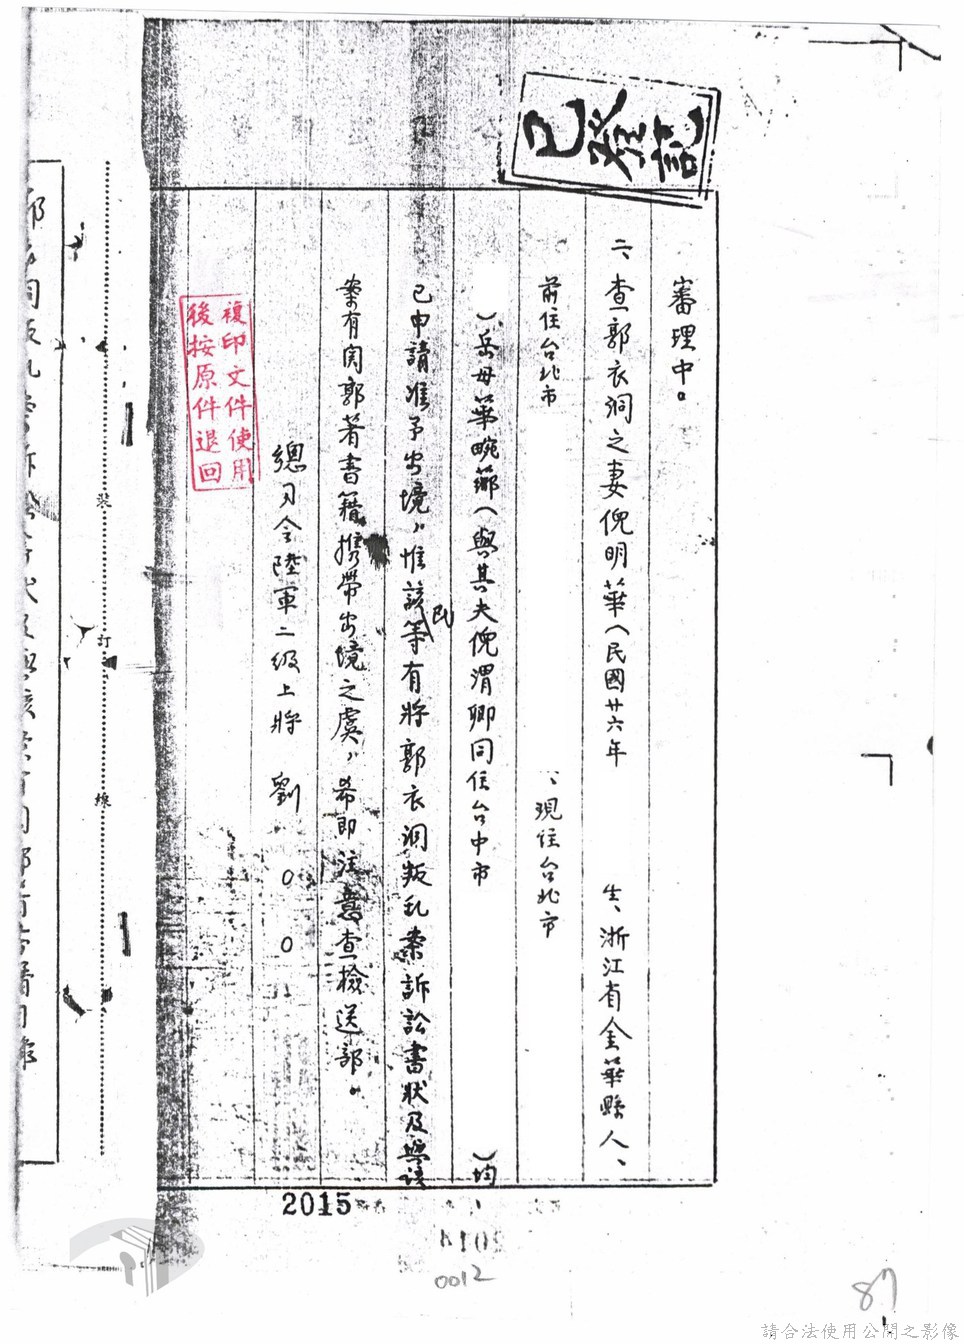 已登記
審理中。
二、查郭衣洞之妻倪明華（民國廿六年 生、浙江省金華縣人、
前住台北市 、現住台北市
）岳母華畹薌（與其夫倪渭卿同住台中市 ）均
已申請准予出境，惟該民等有將郭衣洞叛乱案訴訟書狀及與該
案有関郭著書籍携帶出境之虞，希即注意查檢送部。
總司令陸軍二級上將 劉○○
複印文件使用
後按原件退回
裝
訂
線
2015
0012
87
請合法使用公開之影像